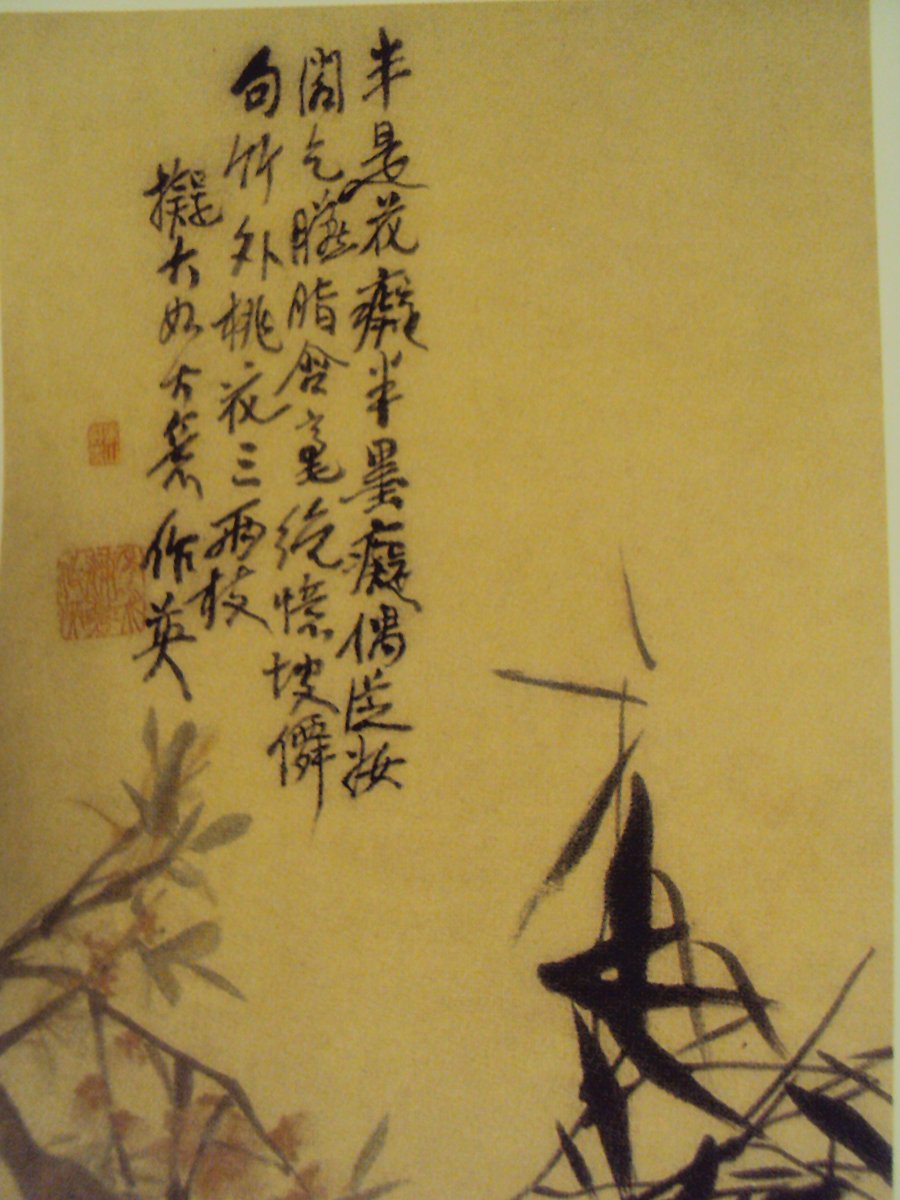 半是花癡半墨癡偶從妝
閣乞臙脂含毫絕憶坡僊
句竹外桃花三兩枝
擬大如作英